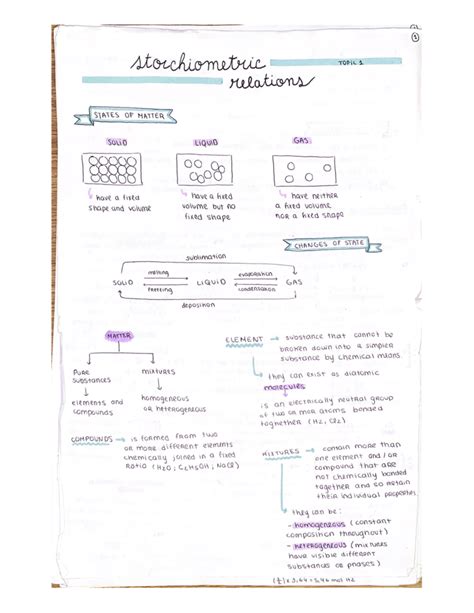 ①
stoichiometric
TOPIC 1
relations
STATES OF MATTER
SOLID
LIQUID
GAS
have a fixed
shape and volume
have a fixed
volume but no
fixed shape
have neither
a fixed volume
nor a fixed shape
CHANGES OF STATE
sublimation
melting
evaporation
SOLID
LIQUID
GAS
freezing
condensation
deposition
MATTER
pure
substances
mixtures
elements and
compounds
homogeneous
or heterogeneous
ELEMENT → substance that cannot be
broken down into a simpler
substance by chemical means.
they can exist as diatomic
molecules
is an electrically neutral group
of two or more atoms bonded
toghether (H2, Cl2)
COMPOUNDS → is formed from two
or more different elements
chemically joined in a fixed
ratio (H2O, C2H5OH, NaCl)
MIXTURES → contain more than
one element and/or
compound that are
not chemically bonded
together and so retain
their individual properties
they can be:
- homogeneous (constant
composition throughout)
- heterogeneous (mixtures
have visible different
substances or phases)